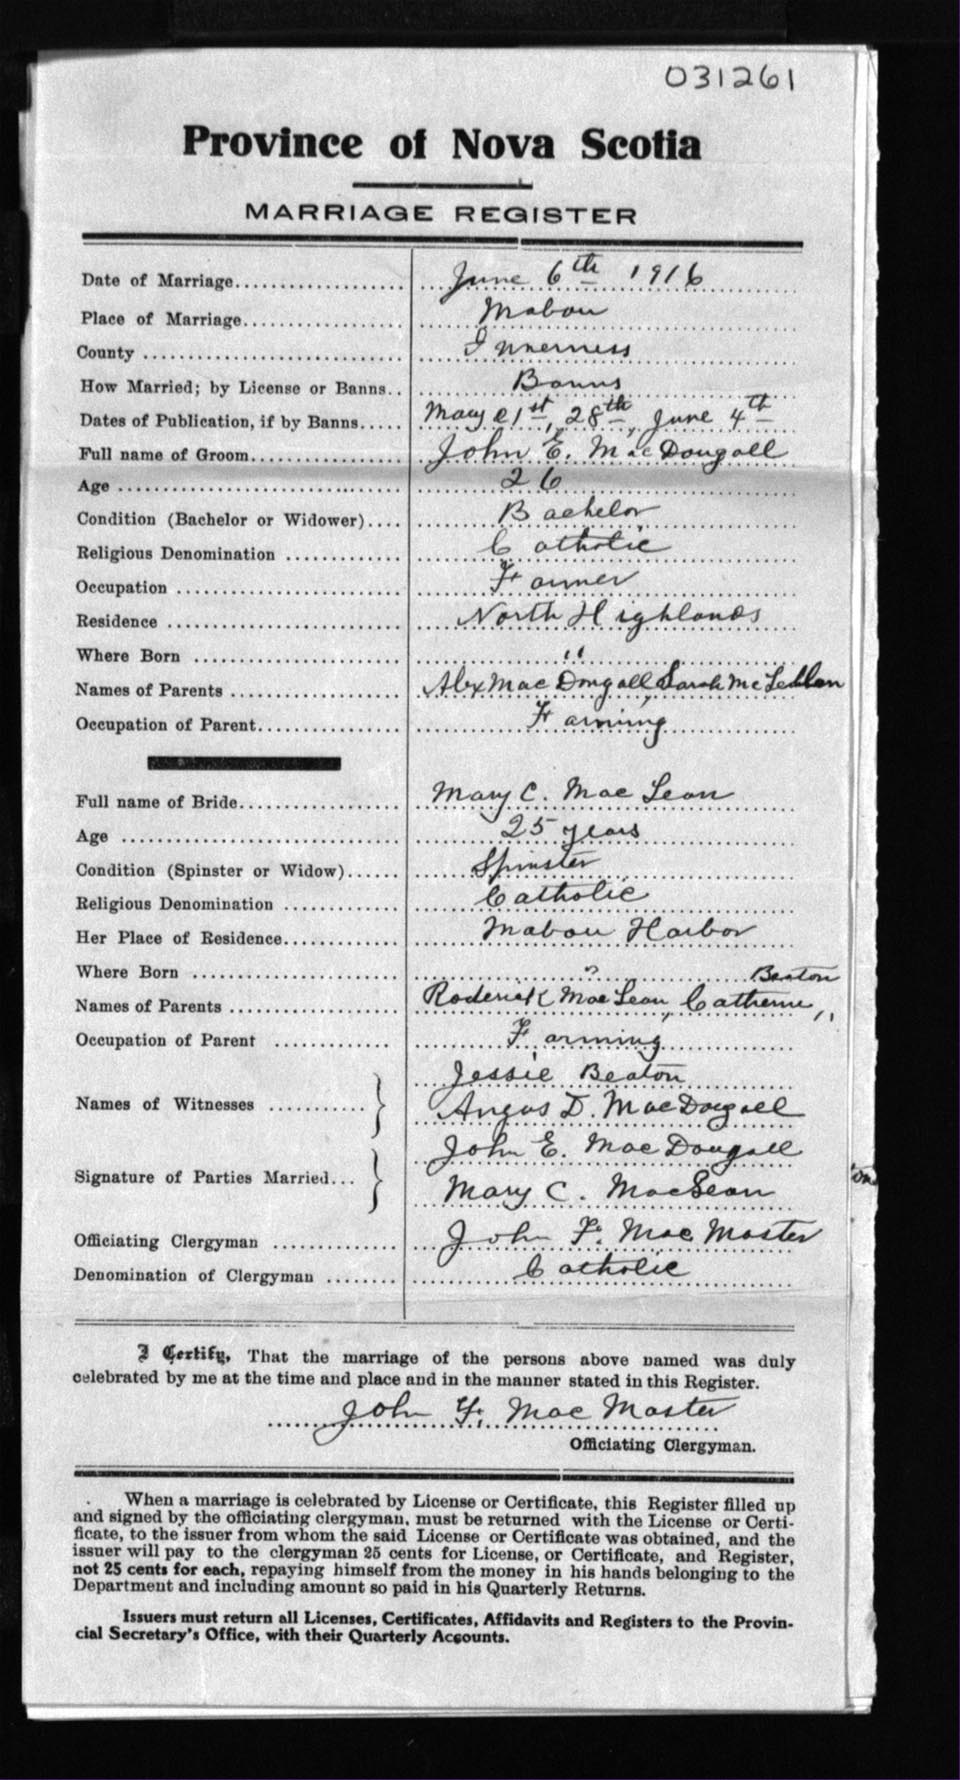 031261
Province of Nova Scotia
MARRIAGE REGISTER
Date of Marriage.................... June 6th 1916
Place of Marriage................... Mabou
County ................... Inverness
How Married; by License or Banns.. Banns
Dates of Publication, if by Banns..... May 21st, 28th, June 4th
Full name of Groom.................. John E. MacDougall
Age ................... 26
Condition (Bachelor or Widower).... Bachelor
Religious Denomination ............. Catholic
Occupation ................... Farmer
Residence ................... North Highlands
Where Born ................... "
Names of Parents ................... Alex MacDougall, Sarah McLellan
Occupation of Parent................ Farming
Full name of Bride.................. Mary C. MacLean
Age ................... 25 years
Condition (Spinster or Widow)...... Spinster
Religious Denomination ............. Catholic
Her Place of Residence.............. Mabou Harbor
Where Born ................... " Beaton
Names of Parents ................... Roderick MacLean, Catherine, "
Occupation of Parent ............. Farming
Names of Witnesses ........... } Jessie Beaton
Angus D. MacDougall
Signature of Parties Married... } John E. MacDougall
Mary C. MacLean
Officiating Clergyman .............. John F. MacMaster
Denomination of Clergyman ........ Catholic
I Certify, That the marriage of the persons above named was duly
celebrated by me at the time and place and in the manner stated in this Register.
John F. MacMaster
Officiating Clergyman.
When a marriage is celebrated by License or Certificate, this Register filled up
and signed by the officiating clergyman, must be returned with the License or Certi-
ficate, to the issuer from whom the said License or Certificate was obtained, and the
issuer will pay to the clergyman 25 cents for License, or Certificate, and Register,
not 25 cents for each, repaying himself from the money in his hands belonging to the
Department and including amount so paid in his Quarterly Returns.
Issuers must return all Licenses, Certificates, Affidavits and Registers to the Provin-
cial Secretary's Office, with their Quarterly Accounts.